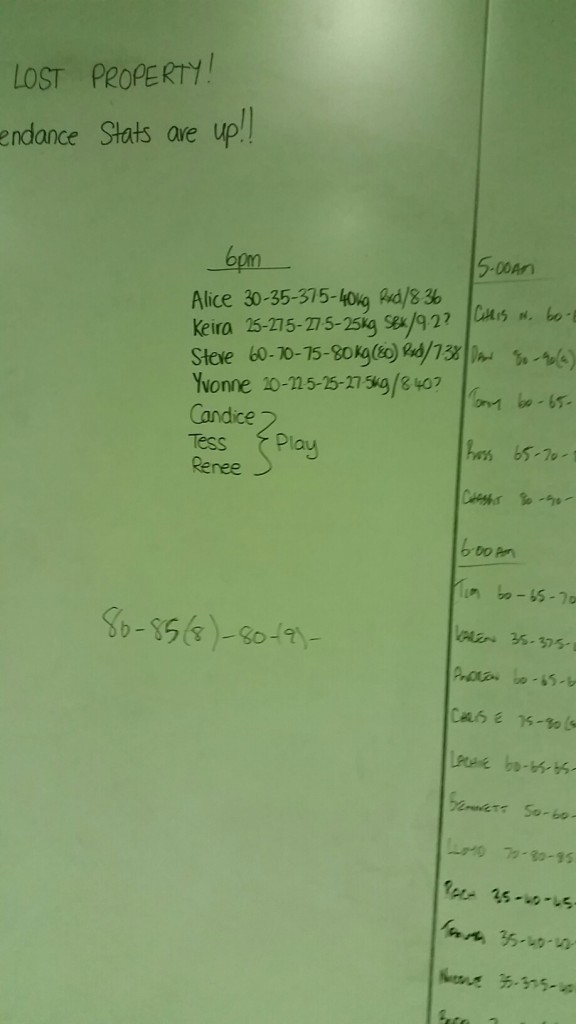 LOST PROPERTY!
endance Stats are up!!
6pm
Alice 30-35-37.5-40kg Rxd/8.36
Keira 25-27.5-27.5-25kg SBK/9.2?
Steve 60-70-75-80kg(80) Rxd/7.38
Yvonne 20-22.5-25-27.5kg/8.40?
Candice
Tess } Play
Renee
80-85(8)-80-(9)-
5:00AM
CHRIS N. 60-
DAN 80-90(9)
Tony 60-65-
Ross 65-70-
80-90-
6:00AM
TIM 60-65-70
KAREN 35-37.5-
ANDREW 60-65-6
CHRIS E 75-80(
LACHIE 60-65-65-
BENNETT 50-60-
LLOYD 70-80-85
RACH 35-40-45
35-40-42
NICOLE 35-37.5-40